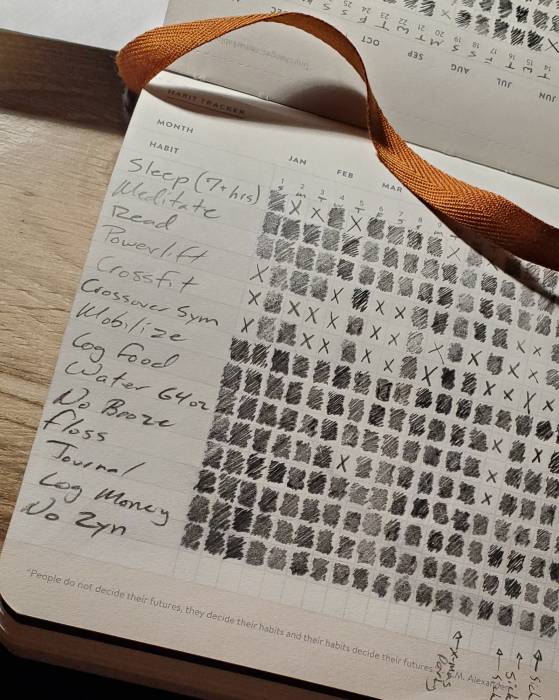 DEC
OCT
SEP
AUG
JUL
JUN
HABIT TRACKER
MONTH
JAN
FEB
MAR
HABIT
1 2 3 4 5 6 7 8 9
Sleep (7+hrs)
Meditate
Read
Powerlift
Crossfit
Crossover Sym
Mobilize
Log Food
Water 64oz
No Booze
Floss
Journal
Log Money
No Zyn
"People do not decide their futures, they decide their habits and their habits decide their futures
M. Alexander
X-mas
Party